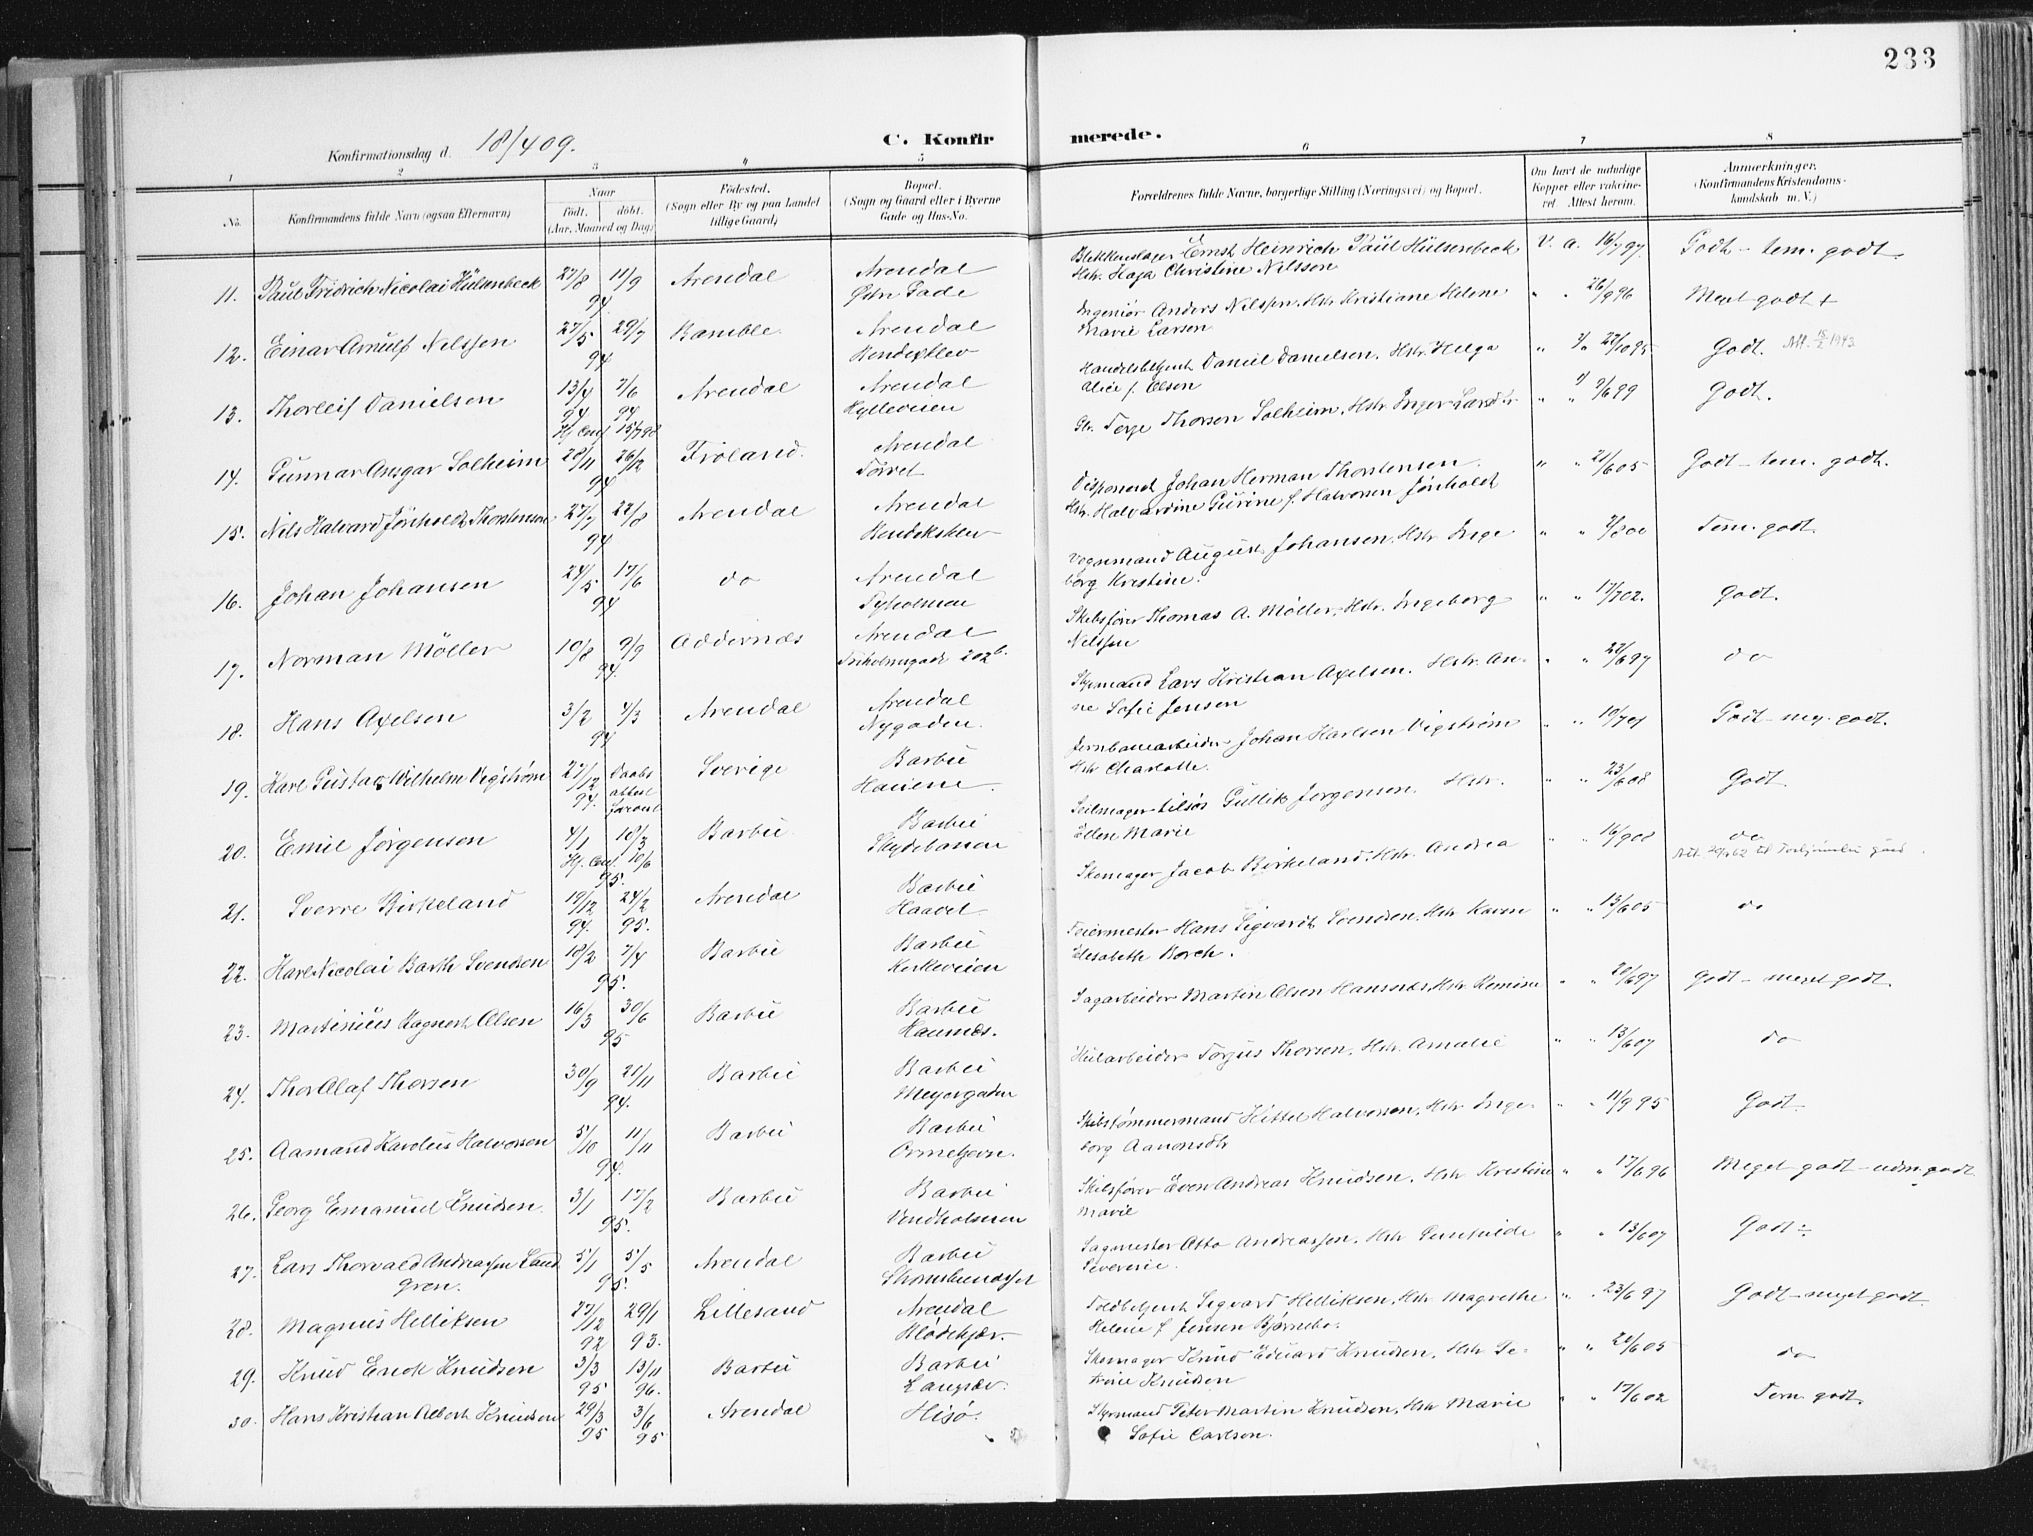 233
Konfirmationsdag d. 18/4 09.
C. Konfirmerede.
1 2 3 4 5 6 7 8
No.
Konfirmandens fulde Navn (ogsaa Efternavn)
Naar
født. døbt.
(Aar, Maaned og Dag)
Fødested.
(Sogn eller By og paa Landet
tillige Gaard)
Bopæl.
(Sogn og Gaard eller i Byerne
Gade og Hus-No.
Forældrenes fulde Navne, borgerlige Stilling (Næringsvei) og Bopæl.
Om havt de naturlige
Kopper eller vakcine-
ret Attest herom.
Anmærkninger.
(Konfirmandens Kristendoms-
kundskab m. V.)
11. Paul Fridrich Nicolai Hülsenbeck 27/8 11/9 94 Arendal Arendal Østre Gade
Blikkenslager Ernst Heinrich Paul Hülsenbeck
Hstr. Haga Christine Nilssen V. a. 16/7 97 Godt – tem. godt.
12. Einar Arnulf Nilssen 27/5 29/7 94 Bamble Arendal Bendiksklev
Ingeniør Anders Nilssen, Hstr Kristiane Helene
Marie Larsen " " 26/9 96 Meget godt +
13. Thorleif Danielsen 13/4 94 7/6 94 Hj. Conf. 15/7 98 Arendal Arendal Hylleveien
Handelsbetjent Daniel Danielsen, Hstr Helga
Alice f. Olsen " " 27/10 95 Godt. Att. 15/2 1943
14. Gunnar Ansgar Solheim 28/11 26/12 94 Froland. Arendal Torvet
Terje Thorsen Solheim, Hstr Inger Larsdtr " " 7/6 99 Godt.
15. Nils Halvard Jönholdt Thorstensen 27/7 27/8 94 Arendal Arendal Bendiksklev
Disponent Johan Herman Thorstensen
Hstr. Halvardine Gurine f. Halvorsen Jönholdt " " 21/6 05 Godt – tem. godt.
16. Johan Johansen 24/5 17/6 94 do Arendal Tyholmen
Vognmand August Johansen, Hstr Inge
borg Kristine. " " 7/8 00 Tem. godt.
17. Norman Möller 10/8 9/9 94. Oddernæs Arendal Friholmsgade 202 b.
Skibsfører Thomas A. Möller, Hstr. Ingeborg
Nilssen " " 17/7 02. Godt.
18. Hans Axelsen 3/2 4/3 94 Arendal Arendal Nygaden.
Styrmand Lars Kristian Axelsen. Hstr. An-
ne Sofie Jensen " " 22/6 97 do
19. Karl Gustav Wilhelm Vigstrøm 27/12 94. Daabs attest forevist Sverige Barbu
Jernbanearbeider Johan Karlsen Vigstrøm
Hstr Charlotte. " " 10/7 01 Godt – meg. godt.
20. Emil Jørgensen 4/1 18/3 Hj. Conf. 10/6 95. Barbu Barbu Skydebanen
Seilmager Gullik Jørgensen. Hstr.
Ellen Marie " " 23/6 08 Godt
21. Sverre Birkeland 19/12 94. 24/2 95. Arendal Barbu Haavet
Skomager Jacob Birkeland, Hstr. Andrea " " 16/9 08 do
22. Karl Nicolai Barth Svendsen 18/2 7/4 95. Barbu Barbu Kirkeveien
Feiermester Hans Sigvardt Svendsen, Hstr Karen
Elisabeth Borch. " " 13/6 05 do
23. Martinius Ragnert Olsen 16/3 30/6 95 Barbu Barbu Havnæs.
Sagarbeider Martin Olsen Hansnæs, Hstr Romine " " 20/6 97 Godt – meget godt.
24. Thor Olaf Thorsen 30/9 21/11 94. Barbu Barbu Meyergaden
Kularbeider Torjus Thorsen, Hstr. Amalie " " 13/6 07 do
25. Aamand Karolius Halvorsen 5/10 11/11 94. Barbu Barbu Ormetjern.
Skibstømmermand Kittel Halvorsen, Hstr Inge-
borg Aanonsdtr " " 11/9 95 Godt.
26. Georg Emanuel Knudsen 3/1 17/2 95. Barbu Barbu Vindholmen
Skibsfører Even Andreas Knudsen, Hstr Kristine
Marie " " 17/6 96 Meget godt – udm. godt
27. Lars Thorvald Andreassen Land
gren. 5/1 5/5 95. Arendal Barbu Thomsbundesset
Sagmester Otto Andreassen. Hstr Gunhilde
Severine. " " 13/6 07 Godt ÷
28. Magnus Helliksen 27/12 92 29/1 93. Lillesand Arendal Blødekjær.
Toldbetjent Sigvard Helliksen, Hstr Magrethe
Helene f Jensen Bjørnebo. " " 23/6 97 Godt – meget godt.
29. Knud Enok Knudsen 3/3 95 13/11 96. Barbu Barbu Langsæ.
Skomager Knud Eduard Knudsen, Hstr Pe-
trine Knudsen " " 21/6 05 do
30. Hans Kristian Albert Knudsen 29/3 95 3/6 95 Arendal Hisø.
Styrmand Peter Martin Knudsen, Hstr Marie
Sofie Carlsen. " " 17/6 02 Tem. godt.